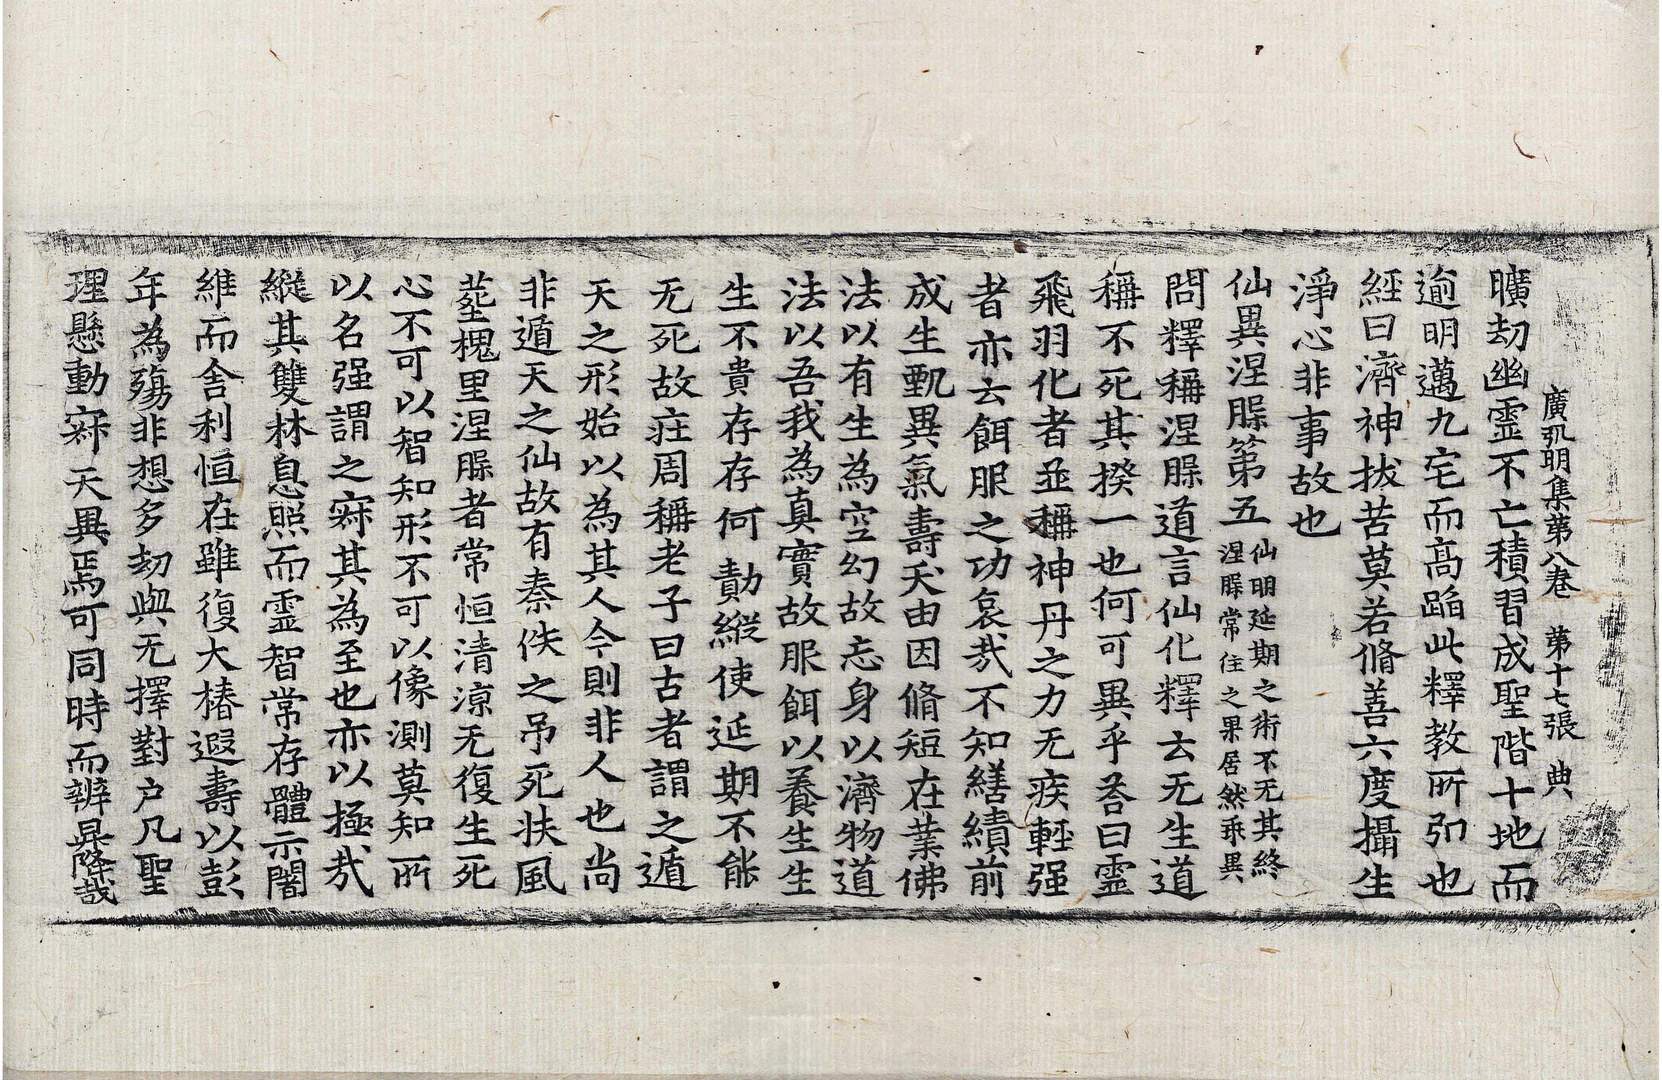 廣弘明集第八卷　第十七張　典
曠劫幽霊不亡積習成聖階十地而
逾明邁九宅而高蹈此釋教所引也
經曰濟神拔苦莫若脩善六度攝生
淨心非事故也
仙異涅脲第五仙明延期之術不无其終
涅脲常住之果居然乖異
問釋稱涅脲道言仙化釋云无生道
稱不死其揆一也何可異乎荅曰靈
飛羽化者並稱神丹之力无疾輕强
者亦云餌服之功哀㢤不知繕績前
成生甄異氣壽夭由因脩短在業佛
法以有生為空幻故忘身以濟物道
法以吾我為真實故服餌以養生生
生不貴存存何勣縱使延期不能
无死故莊周稱老子曰古者謂之遁
天之形始以為其人今則非人也尚
非遁天之仙故有秦佚之吊死扶風
葬槐里涅脲者常恒清凉无復生死
心不可以智知形不可以像測莫知所
以名强謂之寂其為至也亦以極㢤
縱其雙林息照而霊智常存體示闍
維而舍利恒在雖復大椿遐壽以彭
年為殤非想多劫與无擇對户凡聖
理懸動寂天異焉可同時而辨昇降哉